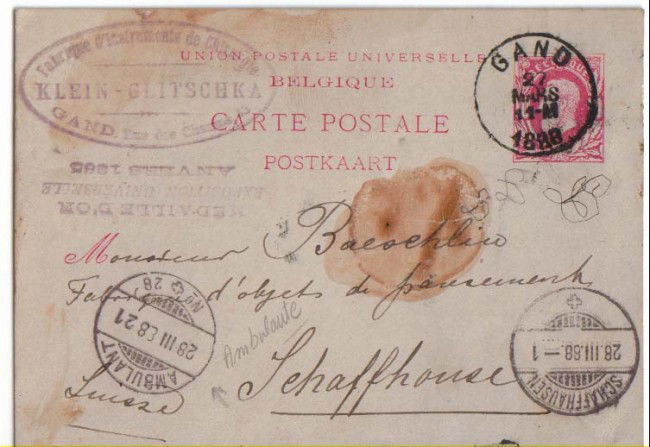 Fabrique d'Instruments de Chirurgie
KLEIN-GLITSCHKA
GAND, Rue des
MEDAILLE D'OR
EXPOSITION UNIVERSELLE
ANVERS 1885
UNION POSTALE UNIVERSELLE
BELGIQUE
CARTE POSTALE
POSTKAART
GAND
27
MARS
11-M
1888
Monsieur Baeschlin
Fabrique d'objets de pansements
Schaffhouse
Suisse
Ambulante
AMBULANT
28 III 88 21
No 28
SCHAFFHAUSEN
28.III.88.-1